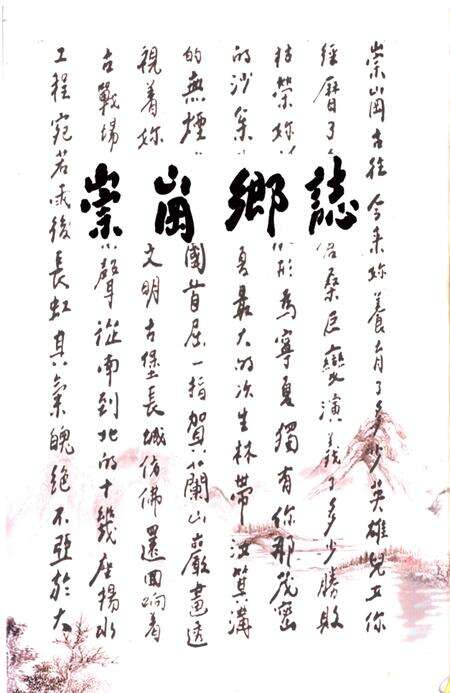 崇崗鄉誌
崇崗古往今来妳養育了多少英雄兒女你
經曆了桑巨變演義了多少勝敗
枯榮妳形為寧夏獨有你那茂密
的沙棗夏最大的次生林帶汝箕溝
的無煙國首屈一指賀蘭山岩畫透
視着妳文明古堡長城仿佛還回响着
古戰場聲從南到北的十幾座揚水
工程宛若雨後長虹其氣魄絕不亞於大